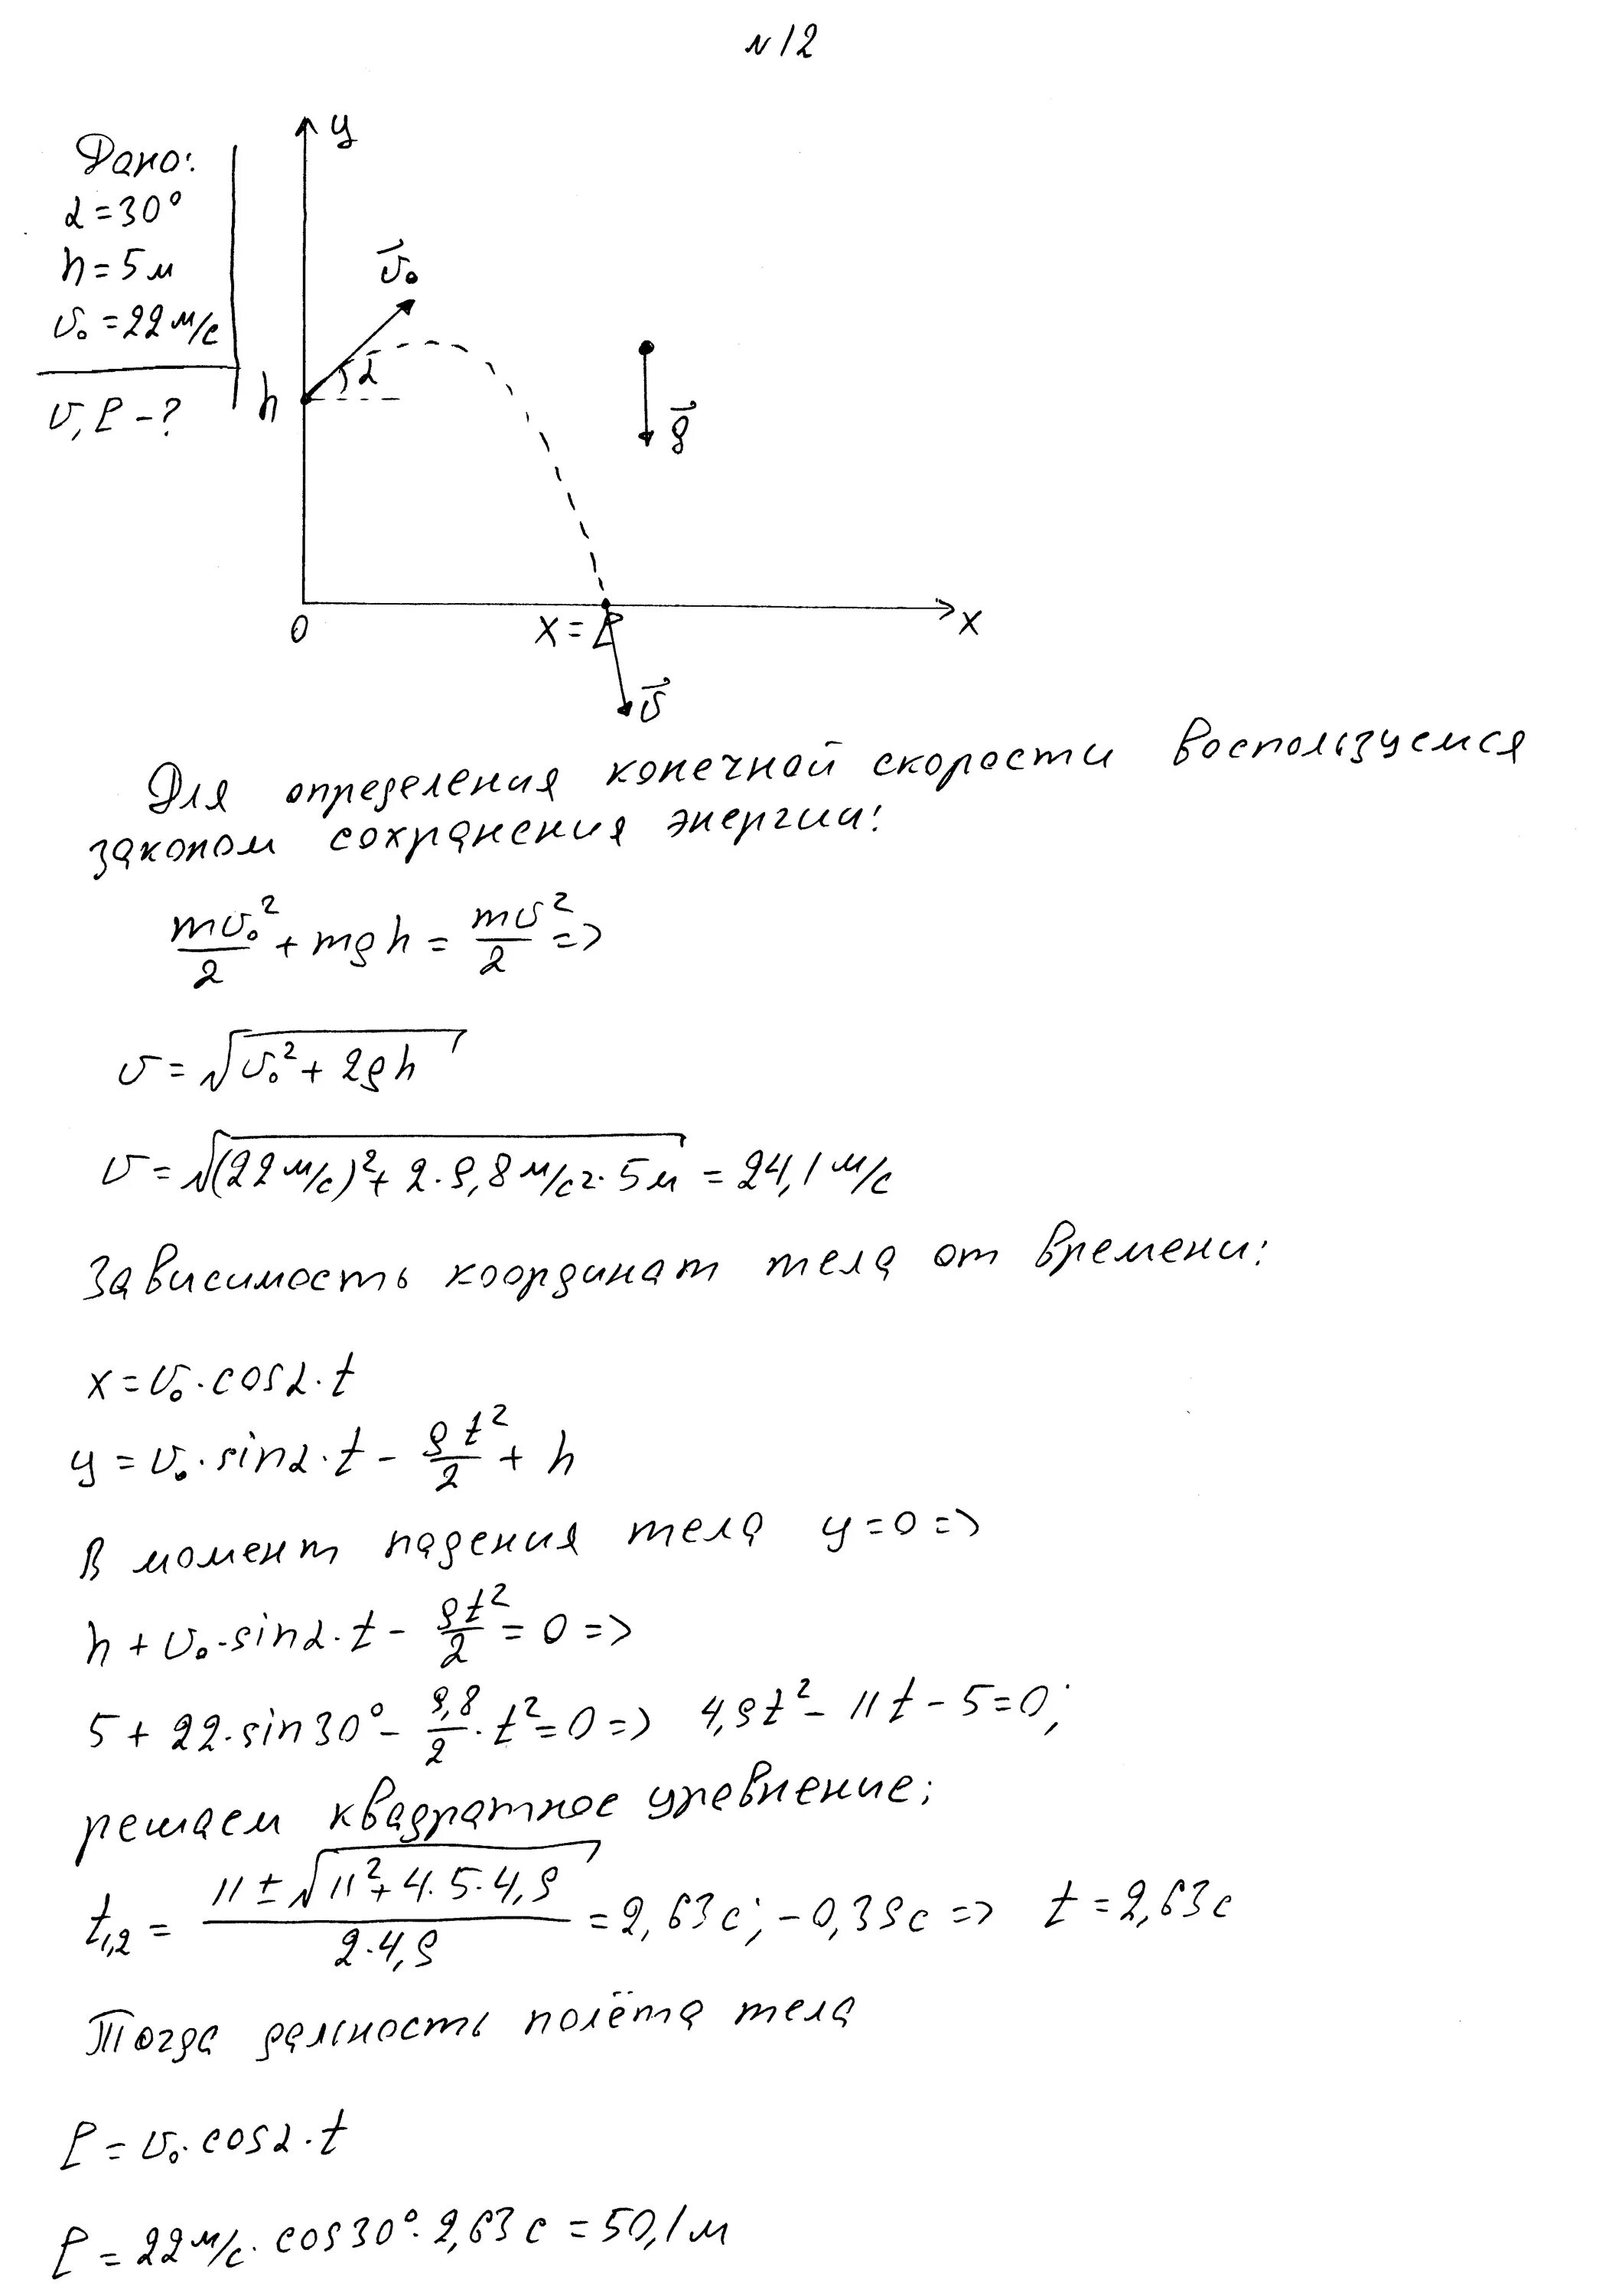 N12
Дано:
α=30°
h=5м
υ₀=22м/с
υ, ℓ-?
y
υ₀
α
h
g
0
x=ℓ
x
υ
Для определения конечной скорости воспользуемся
законом сохранения энергии:
mυ₀²/2 + mgh = mυ²/2 =>
υ = √(υ₀² + 2gh)
υ = √((22м/с)² + 2·9,8м/с²·5м) = 24,1м/с
Зависимость координат тела от времени:
x=υ₀·cosα·t
y=υ₀·sinα·t - gt²/2 + h
В момент падения тела y=0=>
h+υ₀·sinα·t - gt²/2 = 0 =>
5+22·sin30° - 9,8/2·t²=0=> 4,9t² - 11t - 5=0;
решаем квадратное уравнение:
t₁,₂ = (11±√(11²+4·5·4,9))/(2·4,9) = 2,63с; -0,39с => t = 2,63с
Тогда дальность полёта тела
ℓ = υ₀·cosα·t
ℓ = 22м/с·cos30°·2,63с = 50,1м